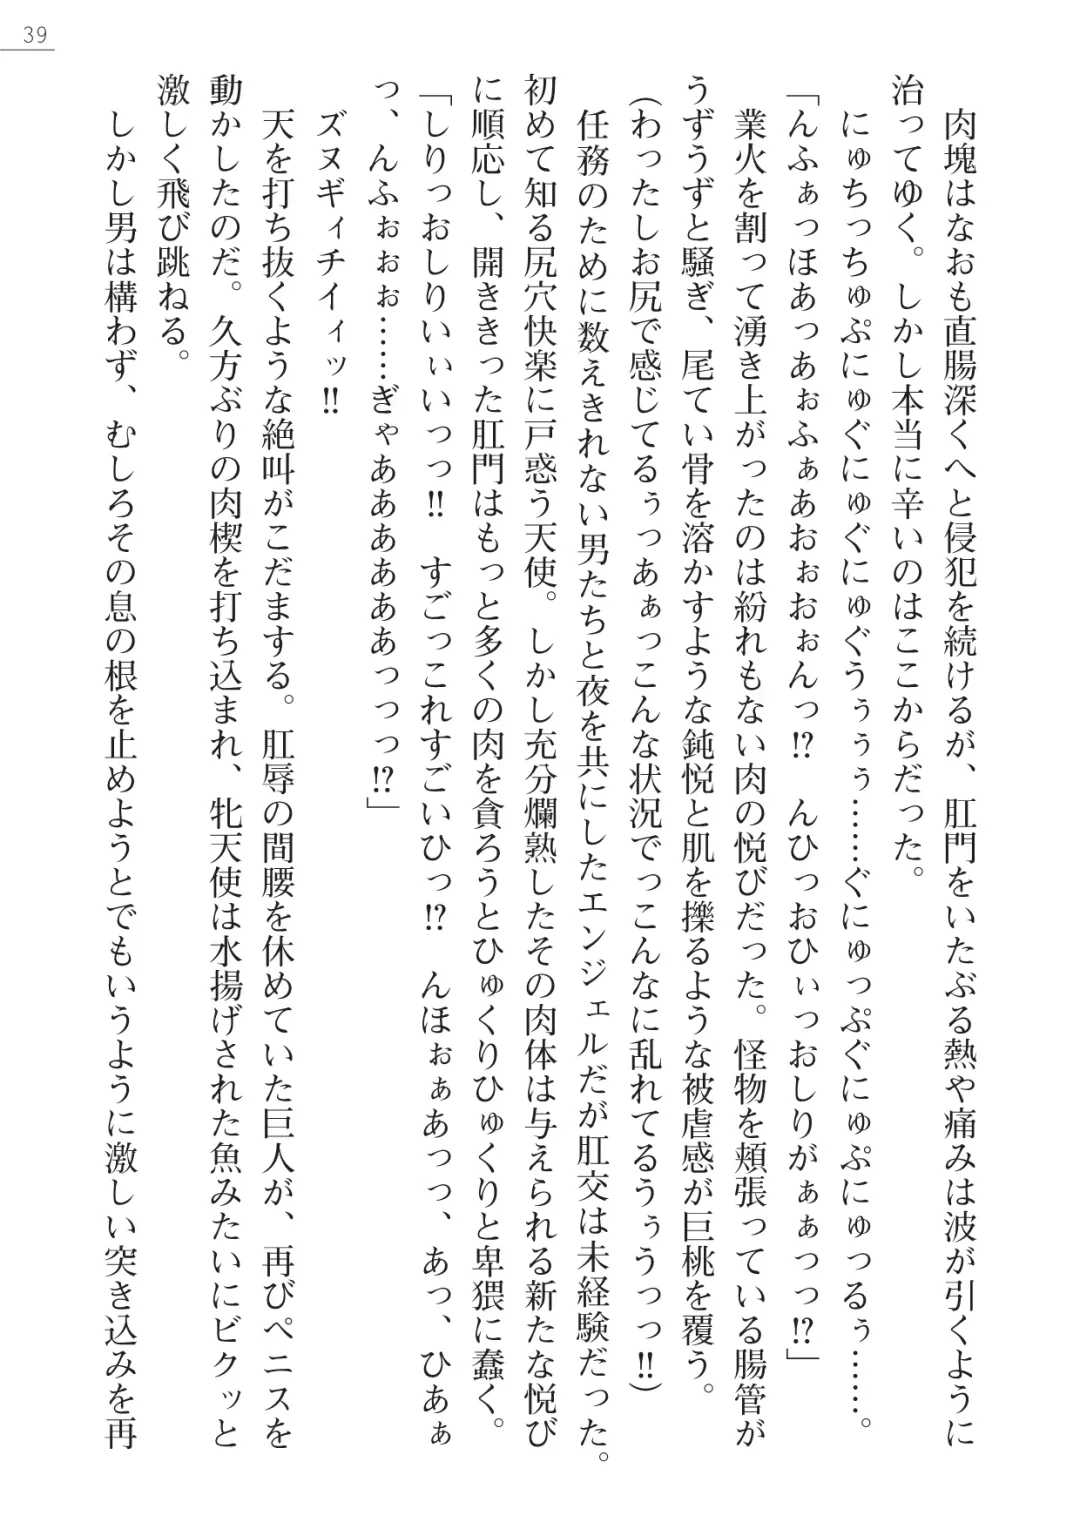 39
肉塊はなおも直腸深くへと侵犯を続けるが、肛門をいたぶる熱や痛みは波が引くように
治ってゆく。しかし本当に辛いのはここからだった。
にゅちっちゅぷにゅぐにゅぐにゅぐうぅぅぅ……ぐにゅっぷぐにゅぷにゅっるぅ……。
「んふぁっほあっあぉふぁあおぉおぉんっ!?　んひっおひぃっおしりがぁぁっっ!?」
業火を割って湧き上がったのは紛れもない肉の悦びだった。怪物を頬張っている腸管が
うずうずと騒ぎ、尾てい骨を溶かすような鈍悦と肌を擽るような被虐感が巨桃を覆う。
(わったしお尻で感じてるぅっあぁっこんな状況でっこんなに乱れてるうぅうっっ!!)
任務のために数えきれない男たちと夜を共にしたエンジェルだが肛交は未経験だった。
初めて知る尻穴快楽に戸惑う天使。しかし充分爛熟したその肉体は与えられる新たな悦び
に順応し、開ききった肛門はもっと多くの肉を貪ろうとひゅくりひゅくりと卑猥に蠢く。
「しりっおしりいぃいっっ!!　すごっこれすごいひっ!?　んほぉぁあっっ、あっ、ひあぁ
っ、んふぉぉぉ……ぎゃああああああっっっ!?」
ズヌギィチイィッ!!
天を打ち抜くような絶叫がこだまする。肛辱の間腰を休めていた巨人が、再びペニスを
動かしたのだ。久方ぶりの肉楔を打ち込まれ、牝天使は水揚げされた魚みたいにビクッと
激しく飛び跳ねる。
しかし男は構わず、むしろその息の根を止めようとでもいうように激しい突き込みを再